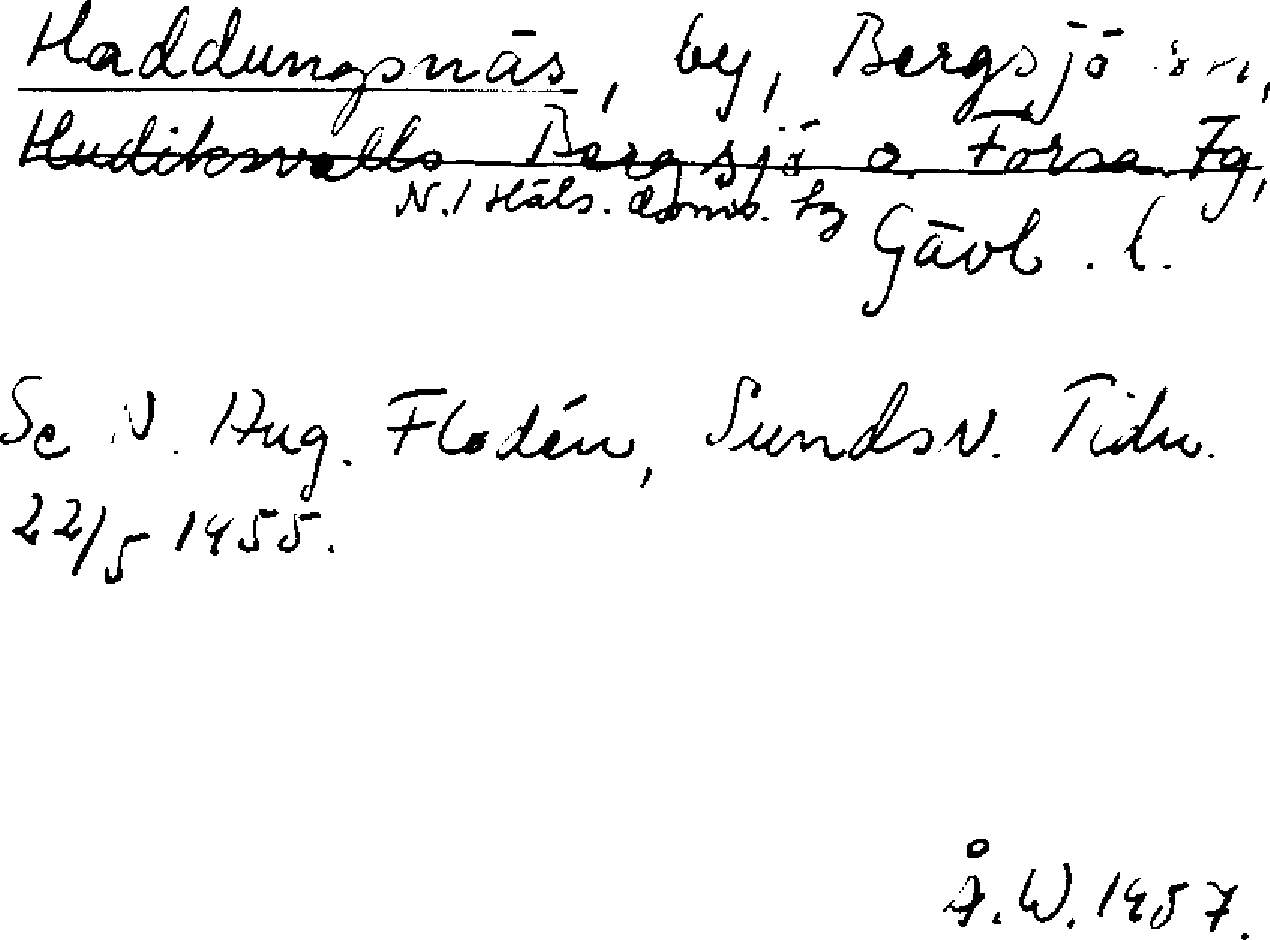 Haddungsnäs, by, Bergsjö sn,
Hudiksvalls Bergsjö o. Forsa Tg,
N. Häls. doms. tg
Gävl. l.
Se N. Aug. Flodén, Sundsv. Tidn.
22/5 1955.
Å. W. 1957.